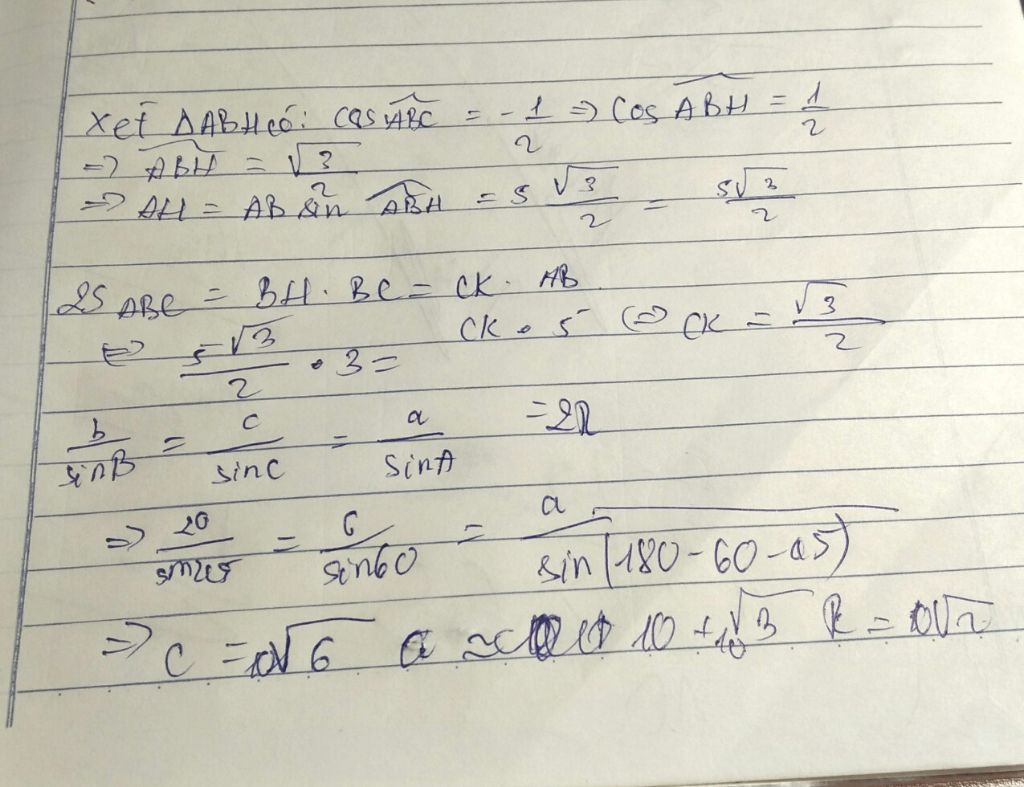 Xét ΔABH có: cos ABC = - 1/2 => Cos ABH = 1/2
=> ABH = √3/2
=> AH = AB sin ABH = 5 √3/2 = 5√3/2
2S ABC = BH . BC = CK . AB
<=> 5√3/2 . 3 = CK . 5 <=> CK = √3/2
b/sinB = c/sinC = a/sinA = 2R
=> 20/sin45 = c/sin60 = a/sin(180-60-45)
=> c = 10√6 a ≈ 10 + 10√3 R = 10√2